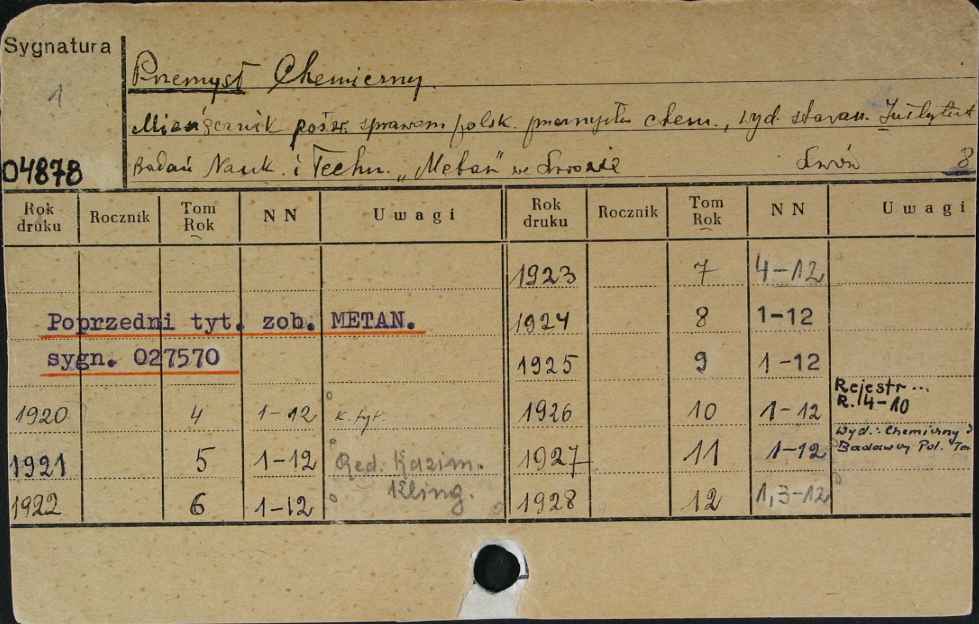 Sygnatura
1
04878
Przemysł Chemiczny.
Miesięcznik pośw. sprawom polsk. przemysłu chem., wyd. staran. Instytut
Badań Nauk. i Techn. „Metan" we Lwowie Lwów 8
Rok druku Rocznik Tom Rok NN Uwagi Rok druku Rocznik Tom Rok NN Uwagi
1923 7 4-12
Poprzedni tyt. zob. METAN. 1924 8 1-12
sygn. 027570 1925 9 1-12
Rejestr...
R. 4-10
1920 4 1-12 k. tyt. 1926 10 1-12
Wyd.: Chemiczny
Badawczy Pol. To
1921 5 1-12 Red. Kazim. 1927 11 1-12
Kling.
1922 6 1-12 1928 12 1,3-12